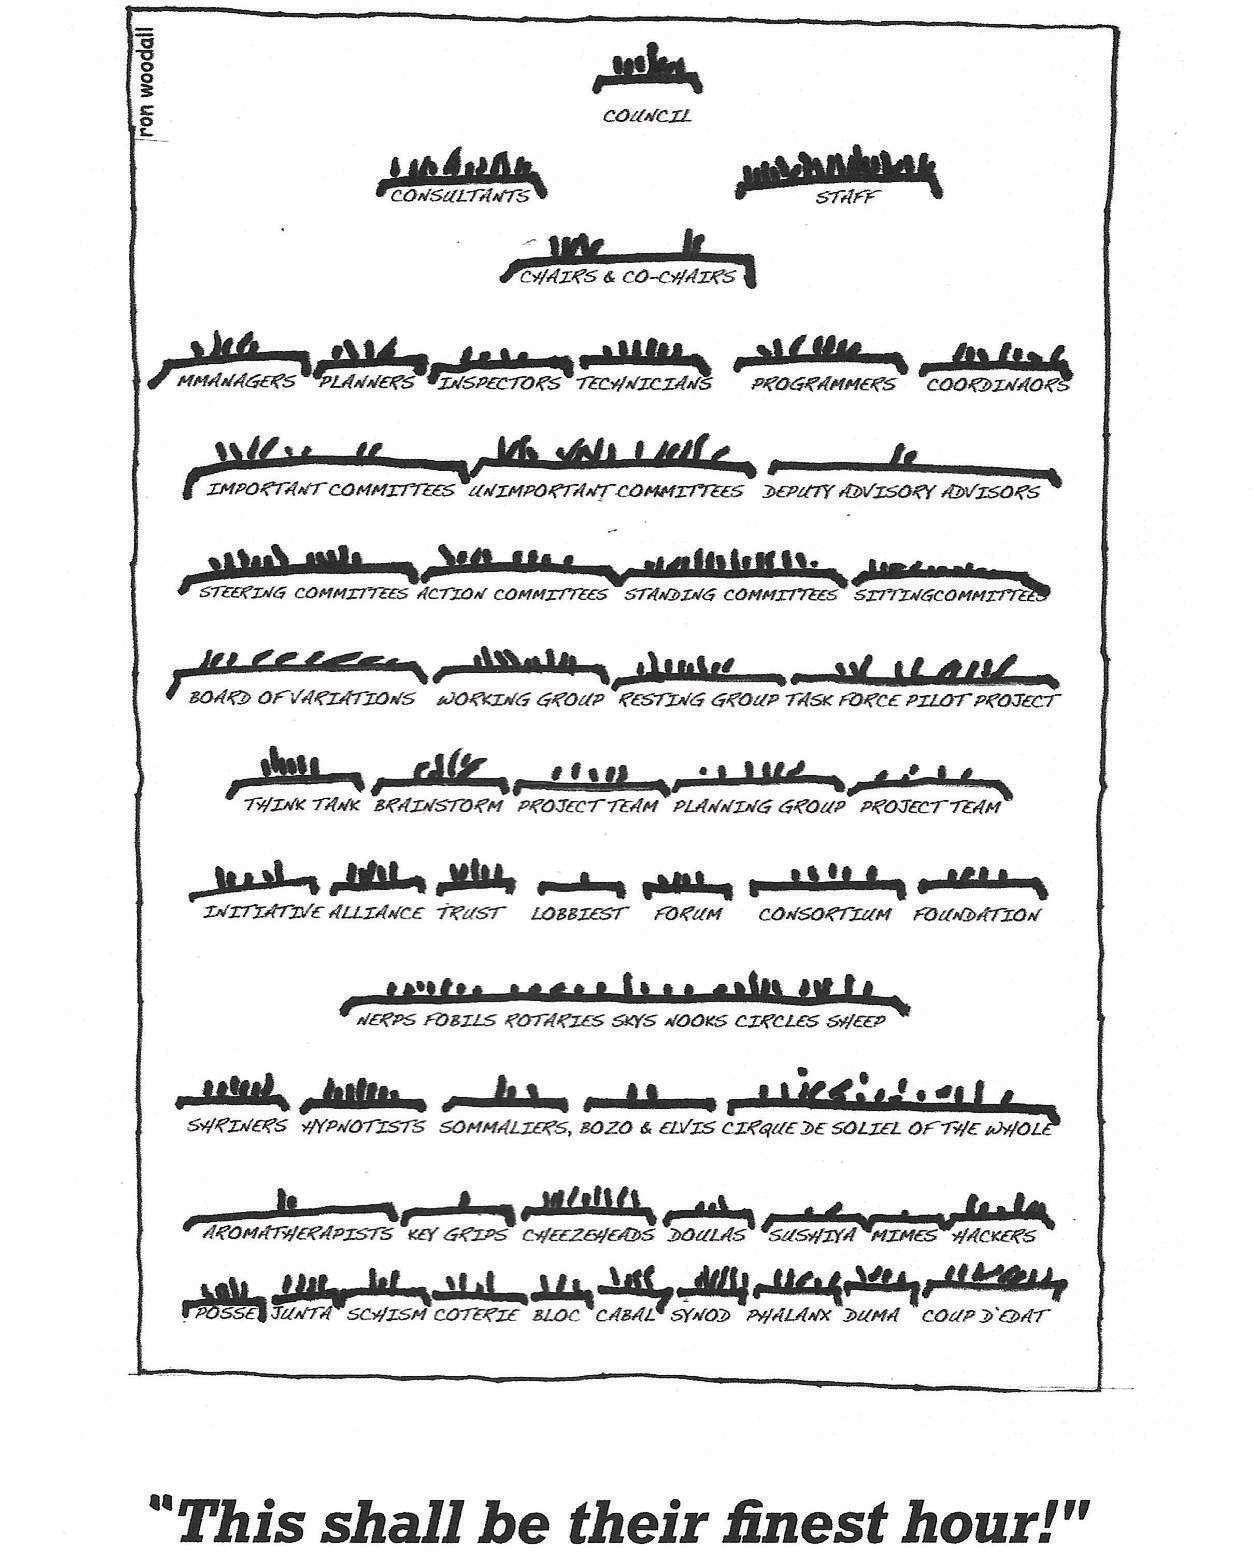 ron woodall
COUNCIL
CONSULTANTS STAFF
CHAIRS & CO-CHAIRS
MMANAGERS PLANNERS INSPECTORS TECHNICIANS PROGRAMMERS COORDINAORS
IMPORTANT COMMITTEES UNIMPORTANT COMMITTEES DEPUTY ADVISORY ADVISORS
STEERING COMMITTEES ACTION COMMITTEES STANDING COMMITTEES SITTINGCOMMITTEES
BOARD OF VARIATIONS WORKING GROUP RESTING GROUP TASK FORCE PILOT PROJECT
THINK TANK BRAINSTORM PROJECT TEAM PLANNING GROUP PROJECT TEAM
INITIATIVE ALLIANCE TRUST LOBBIEST FORUM CONSORTIUM FOUNDATION
NERPS FOBILS ROTARIES SKYS NOOKS CIRCLES SHEEP
SHRINERS HYPNOTISTS SOMMALIERS, BOZO & ELVIS CIRQUE DE SOLIEL OF THE WHOLE
AROMATHERAPISTS KEY GRIPS CHEEZEHEADS DOULAS SUSHIYA MIMES HACKERS
POSSE JUNTA SCHISM COTERIE BLOC CABAL SYNOD PHALANX DUMA COUP D'EDAT
"This shall be their finest hour!"